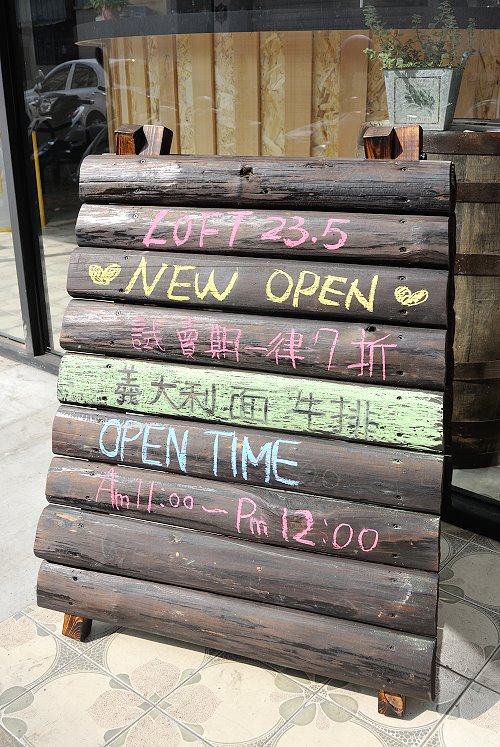 LOFT 23.5
NEW OPEN
試賣期一律7折
義大利面 牛排
OPEN TIME
Am 11:00~Pm 12:00